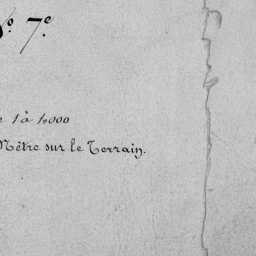 № 7e
1 à 4000
Mètre sur le Terrain.